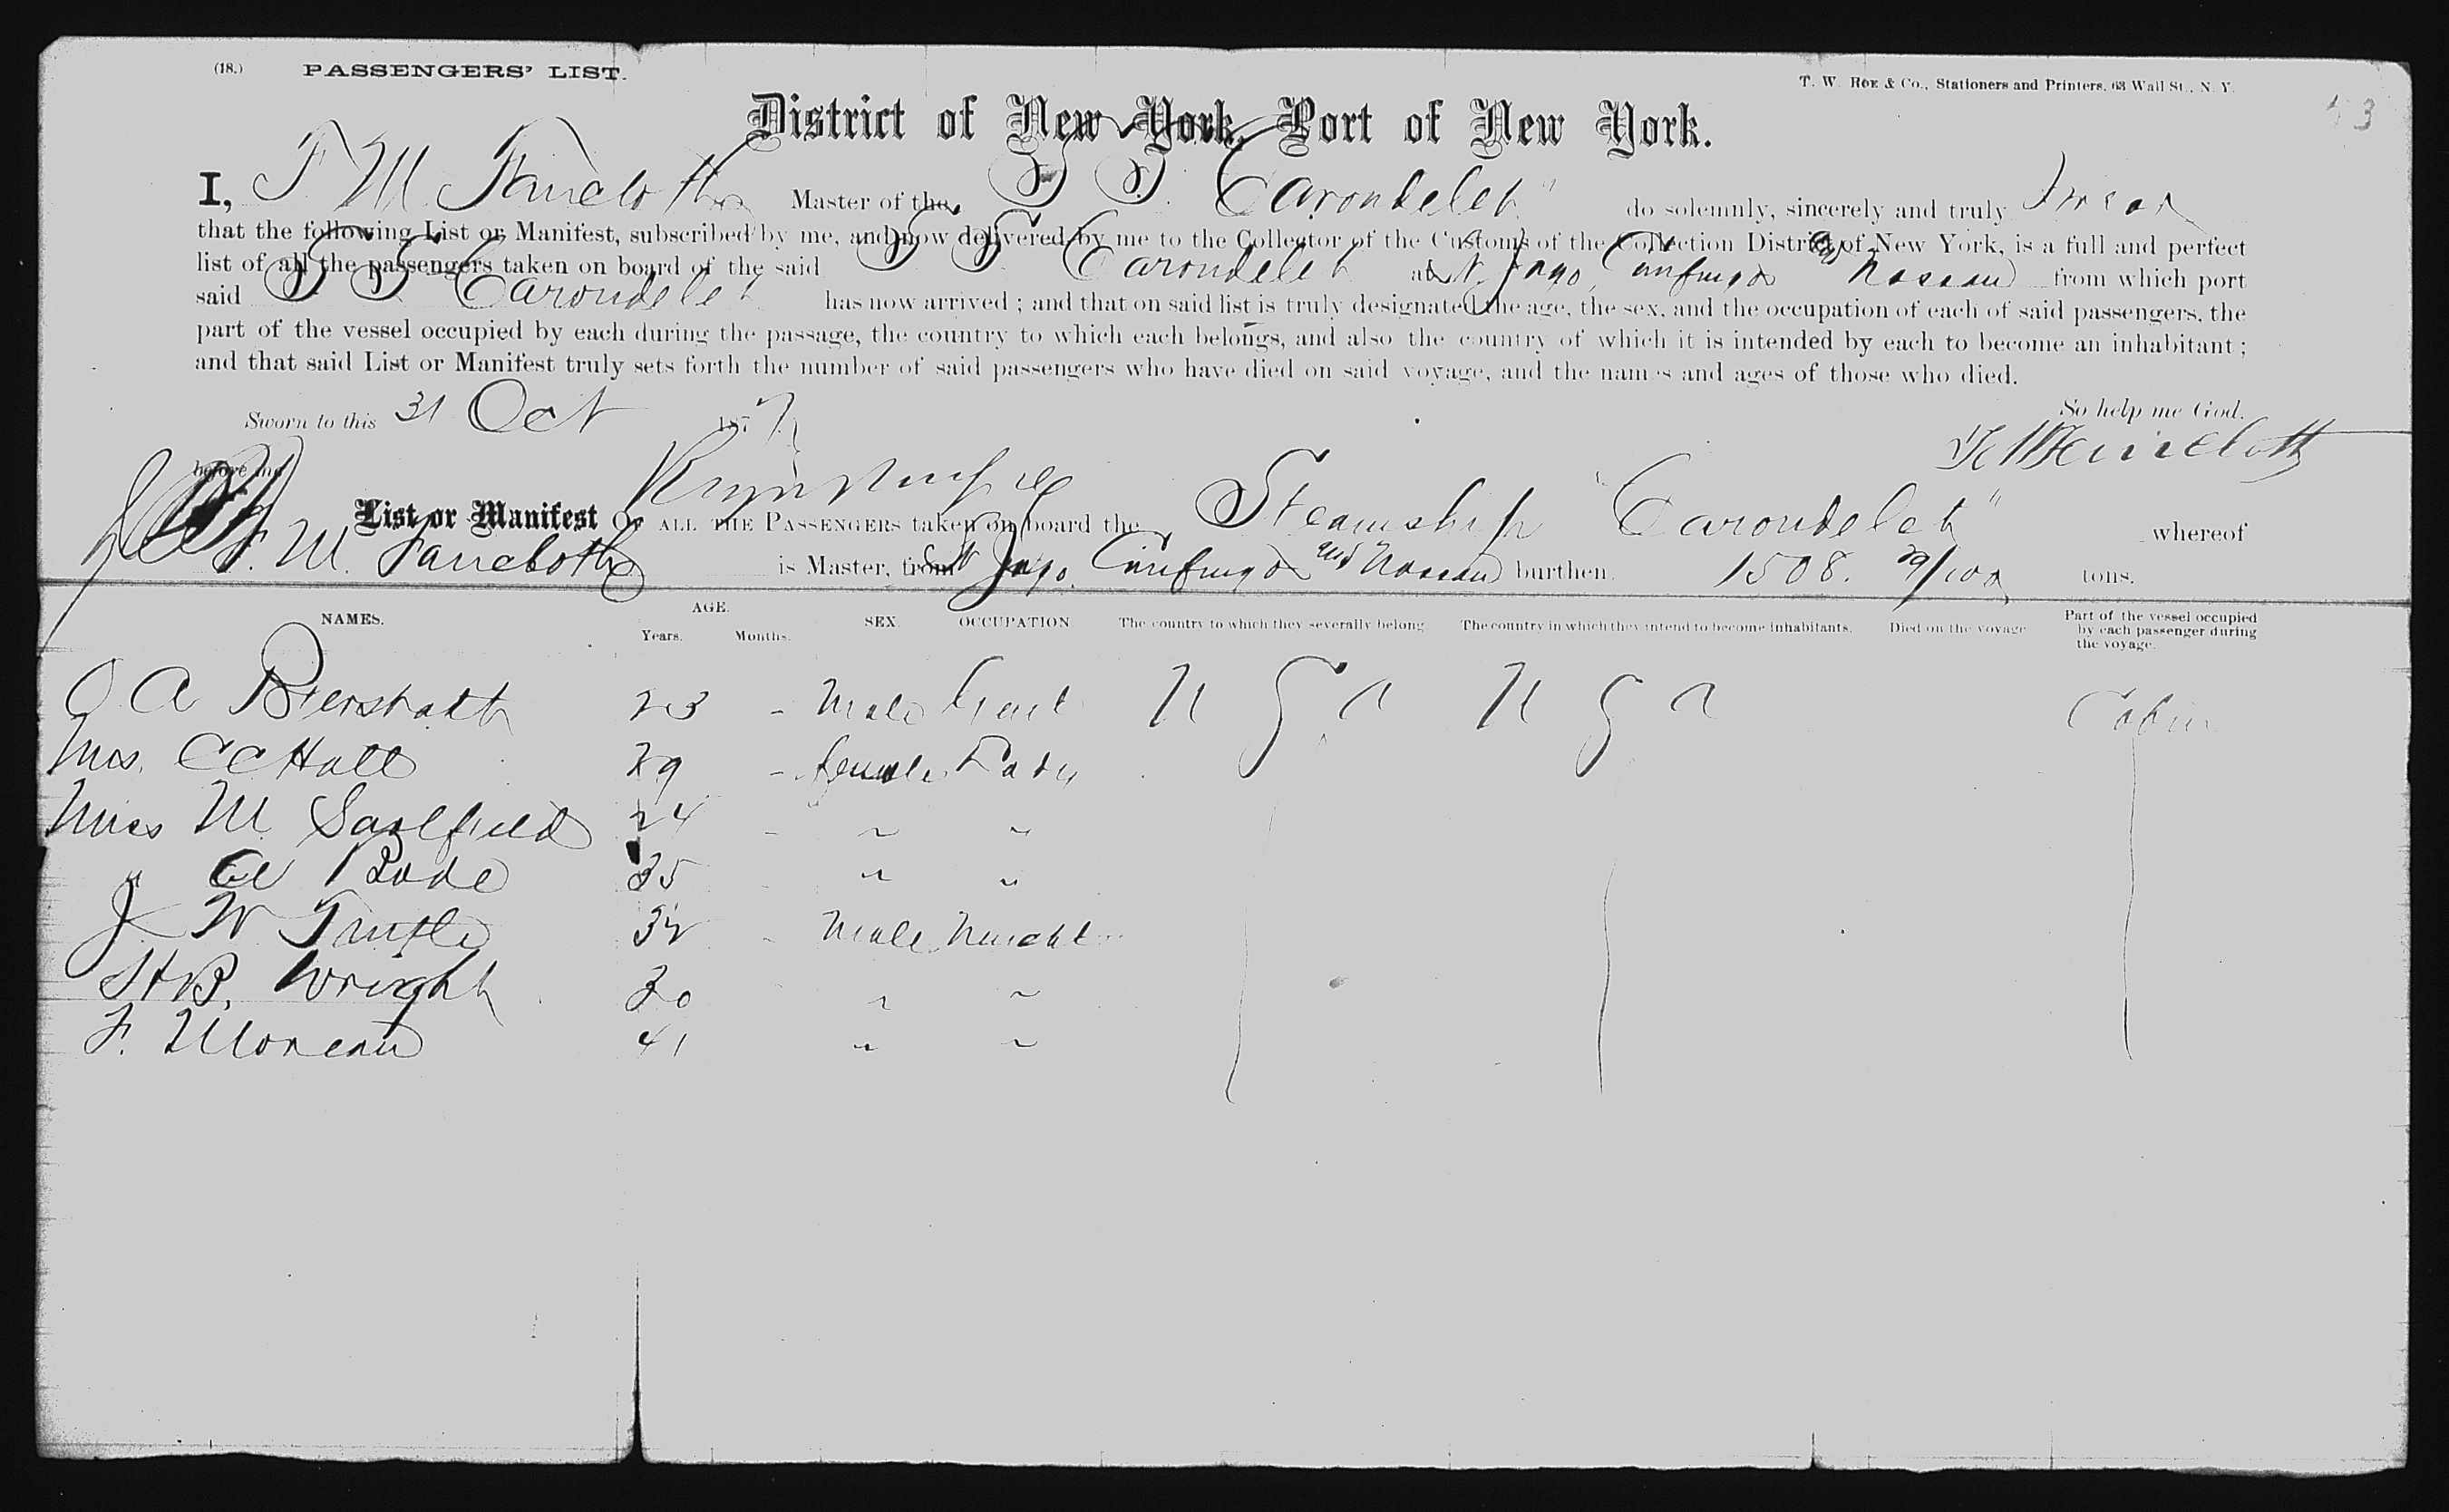 (18.) PASSENGERS' LIST.
T. W. ROE & Co., Stationers and Printers, 63 Wall St., N. Y.
District of New York, Port of New York.
I, F M Faircloth Master of the S S. "Carondelet" do solemnly, sincerely and truly swear
that the following List or Manifest, subscribed by me, and now delivered by me to the Collector of the Customs of the Collection District of New York, is a full and perfect
list of all the passengers taken on board of the said S S. Carondelet at St Jago, Cienfuegos and Nassau from which port
said S S Carondelet has now arrived ; and that on said list is truly designated the age, the sex, and the occupation of each of said passengers, the
part of the vessel occupied by each during the passage, the country to which each belongs, and also the country of which it is intended by each to become an inhabitant ;
and that said List or Manifest truly sets forth the number of said passengers who have died on said voyage, and the names and ages of those who died.
So help me God.
Sworn to this 31 Oct 187
F M Faircloth
before me
List or Manifest OF ALL THE PASSENGERS taken on board the Steamship "Carondelet" whereof
F. M. Faircloth is Master, from St Jago, Cienfuegos and Nassau burthen 1508. 29/100 tons.
NAMES. AGE. Years. Months. SEX. OCCUPATION. The country to which they severally belong. The country in which they intend to become inhabitants. Died on the voyage. Part of the vessel occupied by each passenger during the voyage.
O A Bierstadt 23 - Male Gent U S A U S A Cabin
Mrs. C C Hall 29 - female Lady
Miss M Saalfield 24 - " "
" Rode 35 - " "
J W Tuttle 32 - Male Mercht
H B. Wright 30 " "
F. Moreau 41 " "